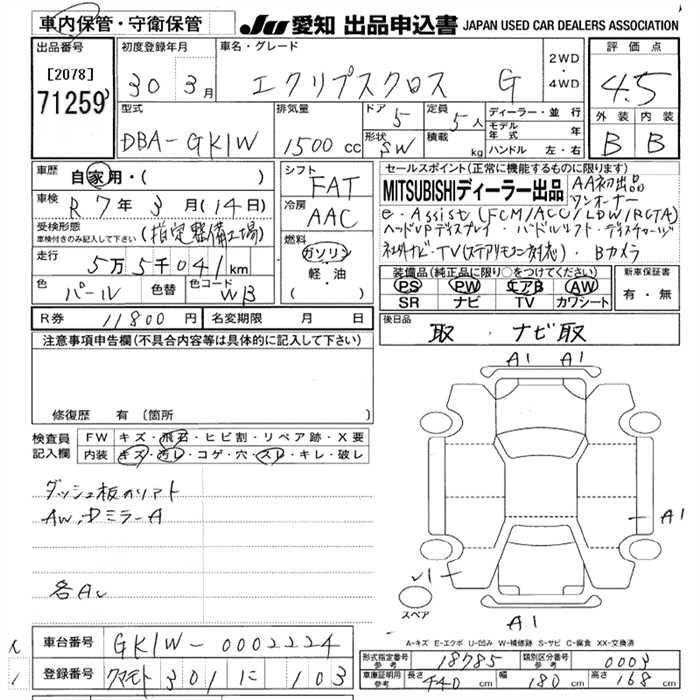 車内保管・守衛保管
JU 愛知 出品申込書 JAPAN USED CAR DEALERS ASSOCIATION
出品番号 [2078] 71259
初度登録年月 30 3月
車名・グレード エクリプスクロス G
2WD・4WD
評価点 4.5
外装 内装
B B
型式 DBA-GK1W
排気量 1500 cc
ドア 5 定員 5人
形状 SW 積載 kg
ディーラー・並行
モデル年式 年
ハンドル 左・右
車歴 自家用・( )
車検 R 7年 3月 (14日)
受検形態 車検付きのみ記入して下さい (指定整備工場)
走行 5万5千041km
色 パール 色替 色コード W13
シフト FAT
冷房 AAC
燃料 ガソリン 軽・油 ( )
セールスポイント(正常に機能するものに限ります)
MITSUBISHIディーラー出品 AA初出品
ワンオーナー
e-Assist(FCM/ACC/LDW/RCTA)
ヘッドUPディスプレイ・パドルシフト・
社外ナビ・TV(ステアリモコン対応)・Bカメラ
装備品(純正品に限り○をつけてください)
PS PW エアB AW
SR ナビ TV カワシート
新車保証書 有・無
R券 11800円 名変期限 月 日
後日品 取・ナビ取
注意事項申告欄(不具合内容等は具体的に記入して下さい)
修復歴 有 (箇所
検査員記入欄
FW キズ・飛石・ヒビ割・リペア跡・X要
内装 キズ・汚レ・コゲ・穴・スレ・キレ・破レ
AW,ドミラーA
各A
A1 A1
A1
A1
スペア
A-キズ E-エクボ U-凹み W-補修跡 S-サビ C-腐食 XX-交換済
車台番号 GK1W-0002224
登録番号 クマモト 301 に 103
形式指定番号 参考 18785 類別区分番号 参考 0003
車庫証明用 参考 長さ 440cm 幅 180cm 高さ 168cm